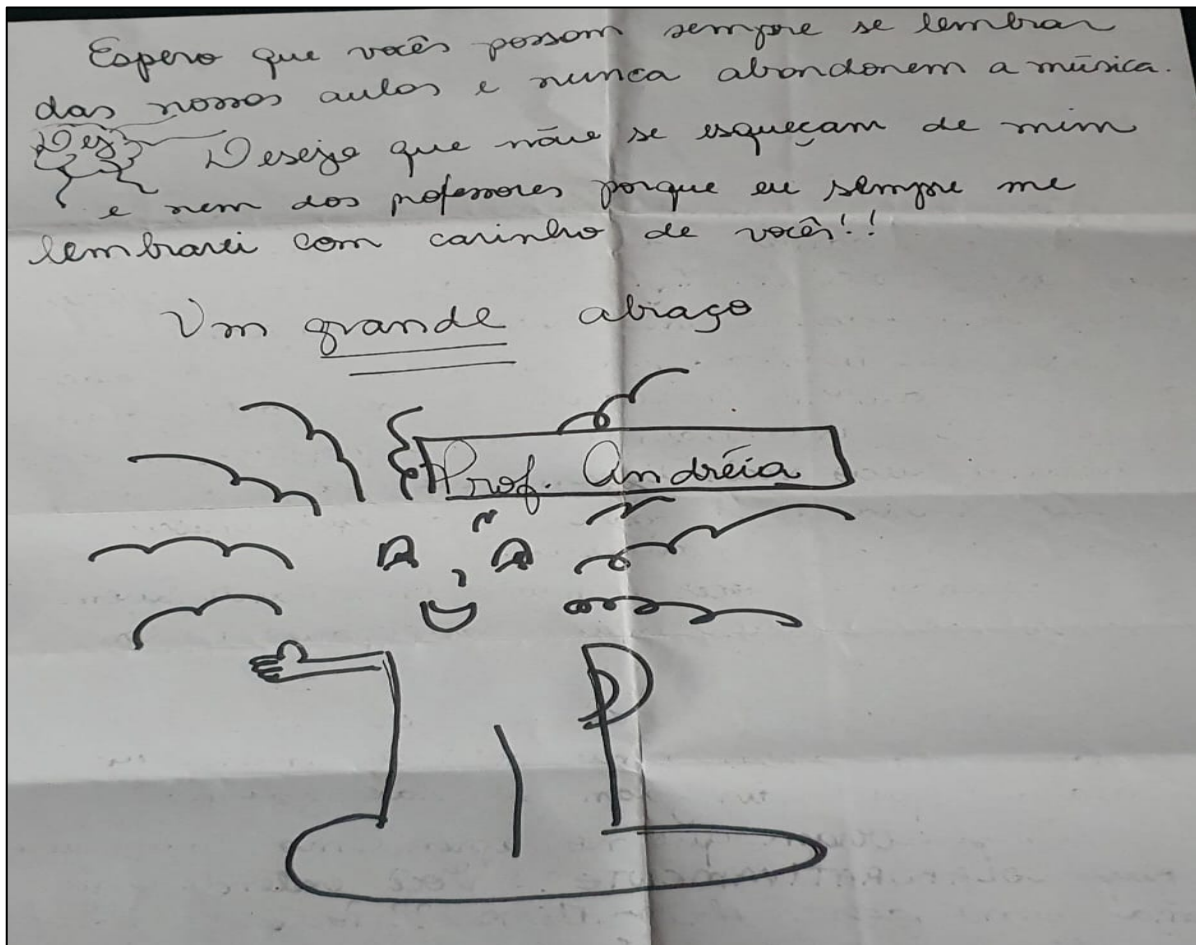 Espero que vocês possam sempre se lembrar
das nossas aulas e nunca abandonem a música.
Desejo que não se esqueçam de mim
e nem dos professores porque eu sempre me
lembrarei com carinho de vocês!!
Um grande abraço
Prof. Andréia